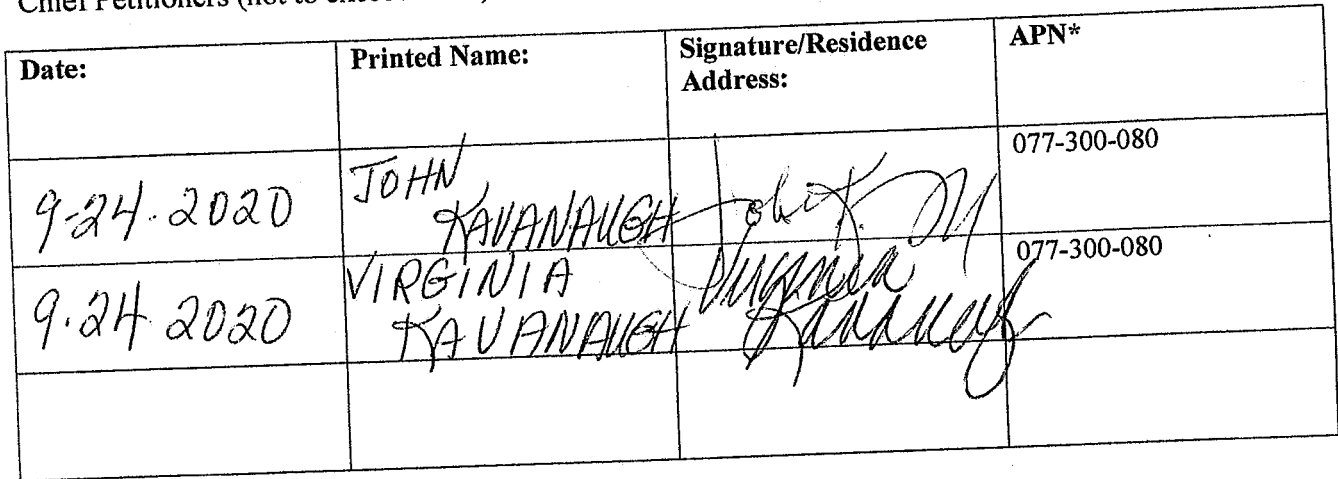 Chief Petitioners (not to exceed
Date: Printed Name: Signature/Residence Address: APN*
9-24-2020 JOHN KAVANAUGH John K. 077-300-080
9.24 2020 VIRGINIA KAVANAUGH Virginia Kavanaugh 077-300-080